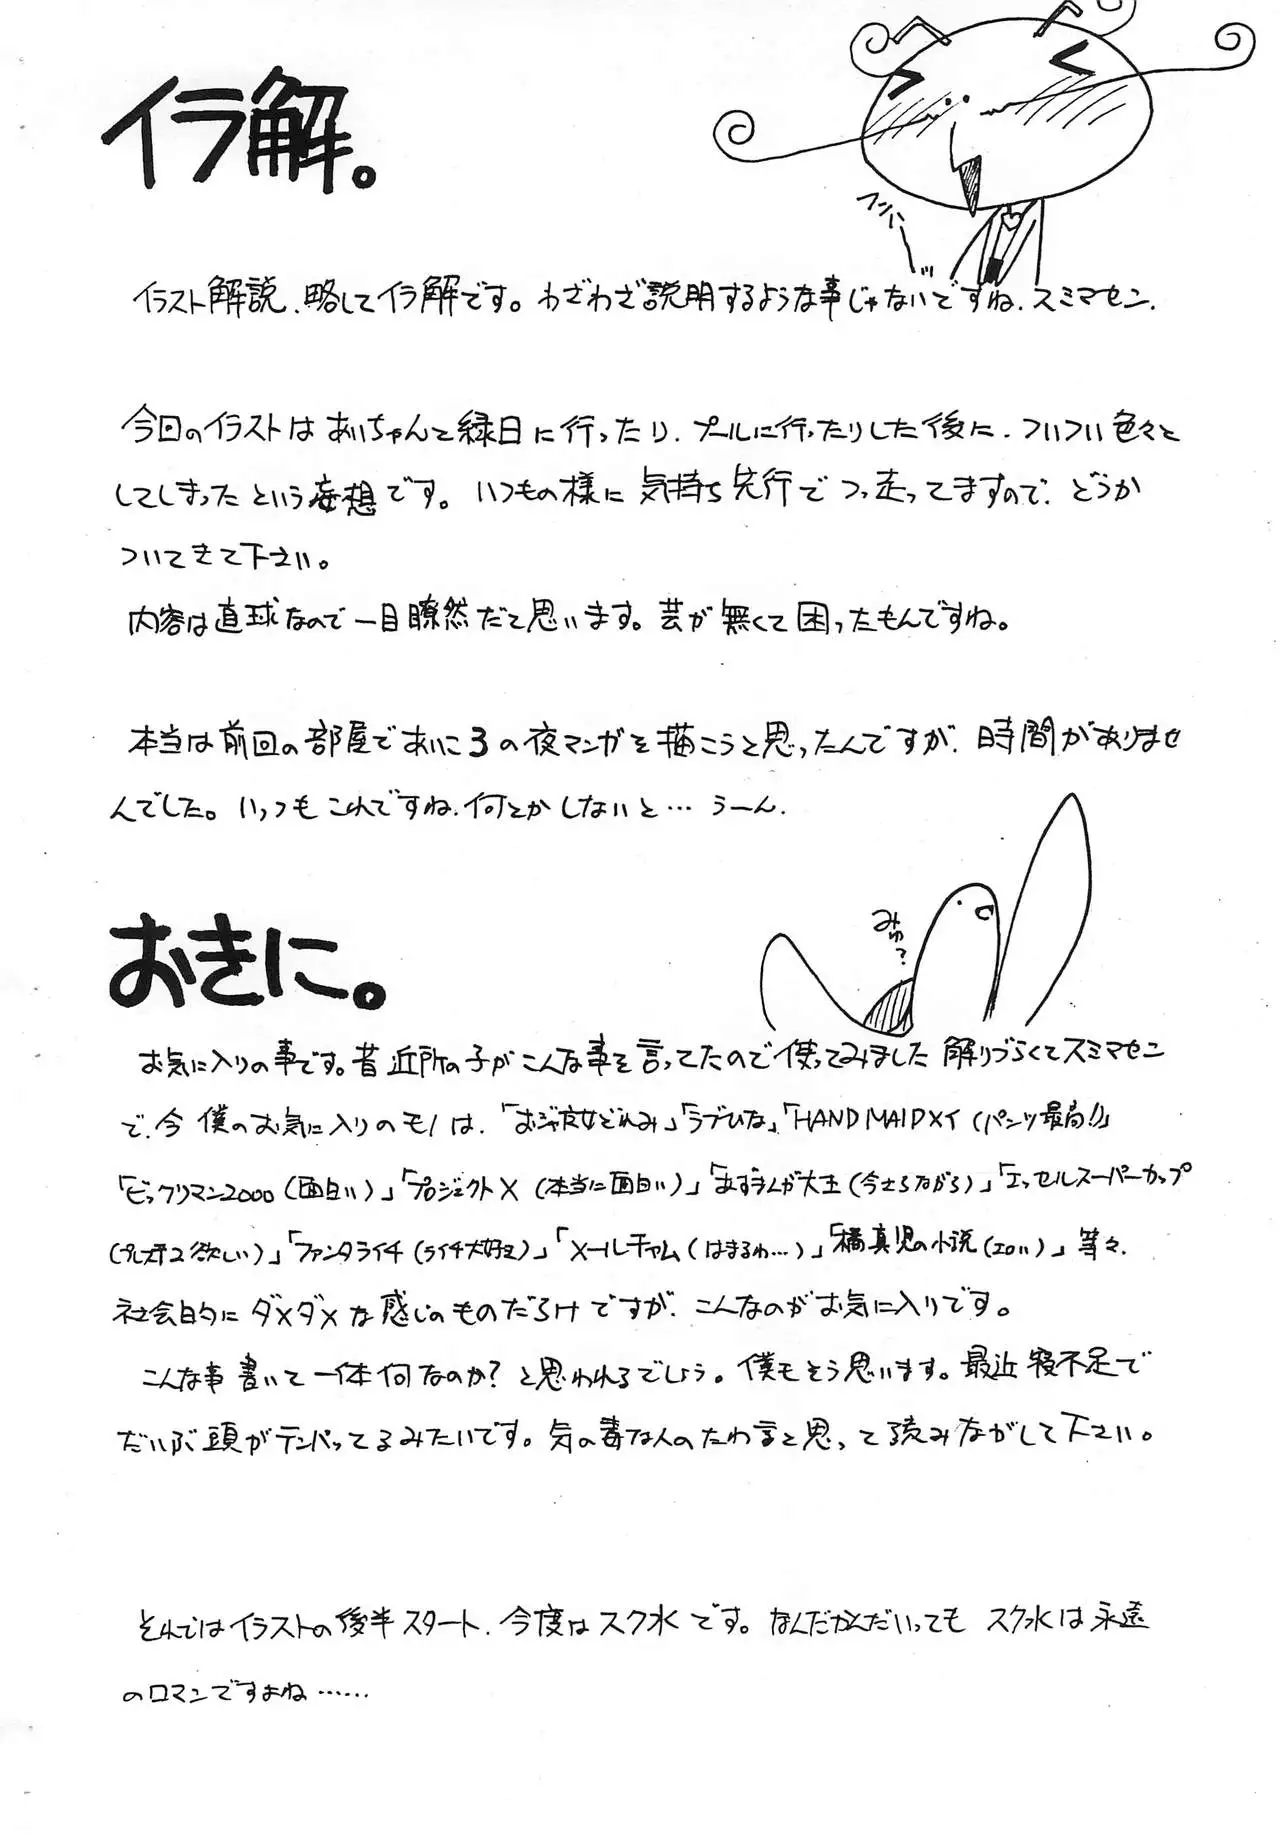 イラ解。
フシ
イラスト解説、略してイラ解です。わざわざ説明するような事じゃないですね、スミマセン。
今回のイラストはあいちゃんと縁日に行ったり、プールに行ったりした後に、ついつい色々と
してしまったという妄想です。いつもの様に気持ち先行でつっ走ってますので、どうか
ついてきて下さい。
内容は直球なので一目瞭然だと思います。芸が無くて困ったもんですね。
本当は前回の部屋であいこ3の夜マンガを描こうと思ったんですが、時間がありませ
んでした。いっつもこれですね、何とかしないと…うーん。
みゅ?
おきに。
お気に入りの事です。昔近所の子がこんな事を言ってたので使ってみました解りづらくてスミマセン
で、今僕のお気に入りのモノは、「おジャ魔女どれみ」「ラブひな」「HAND MAIDメイ(パンツ最高!!)」
「ビックリマン2000(面白い)」「プロジェクトX(本当に面白い)」「あずまんが大王(今さらながら)」「エッセルスーパーカップ
(プレステ2欲しい)」「ファンタライチ(ライチ大好き)」「メールチャム(はまるわ…)」「橘真児の小説(エロい)」等々、
社会的にダメダメな感じのものだらけですが、こんなのがお気に入りです。
こんな事書いて一体何なのか?と思われるでしょう。僕もそう思います。最近寝不足で
だいぶ頭がテンパってるみたいです。気の毒な人のたわ言と思って読みながして下さい。
それではイラストの後半スタート、今度はスク水です。なんだかんだいってもスク水は永遠
のロマンですよね……